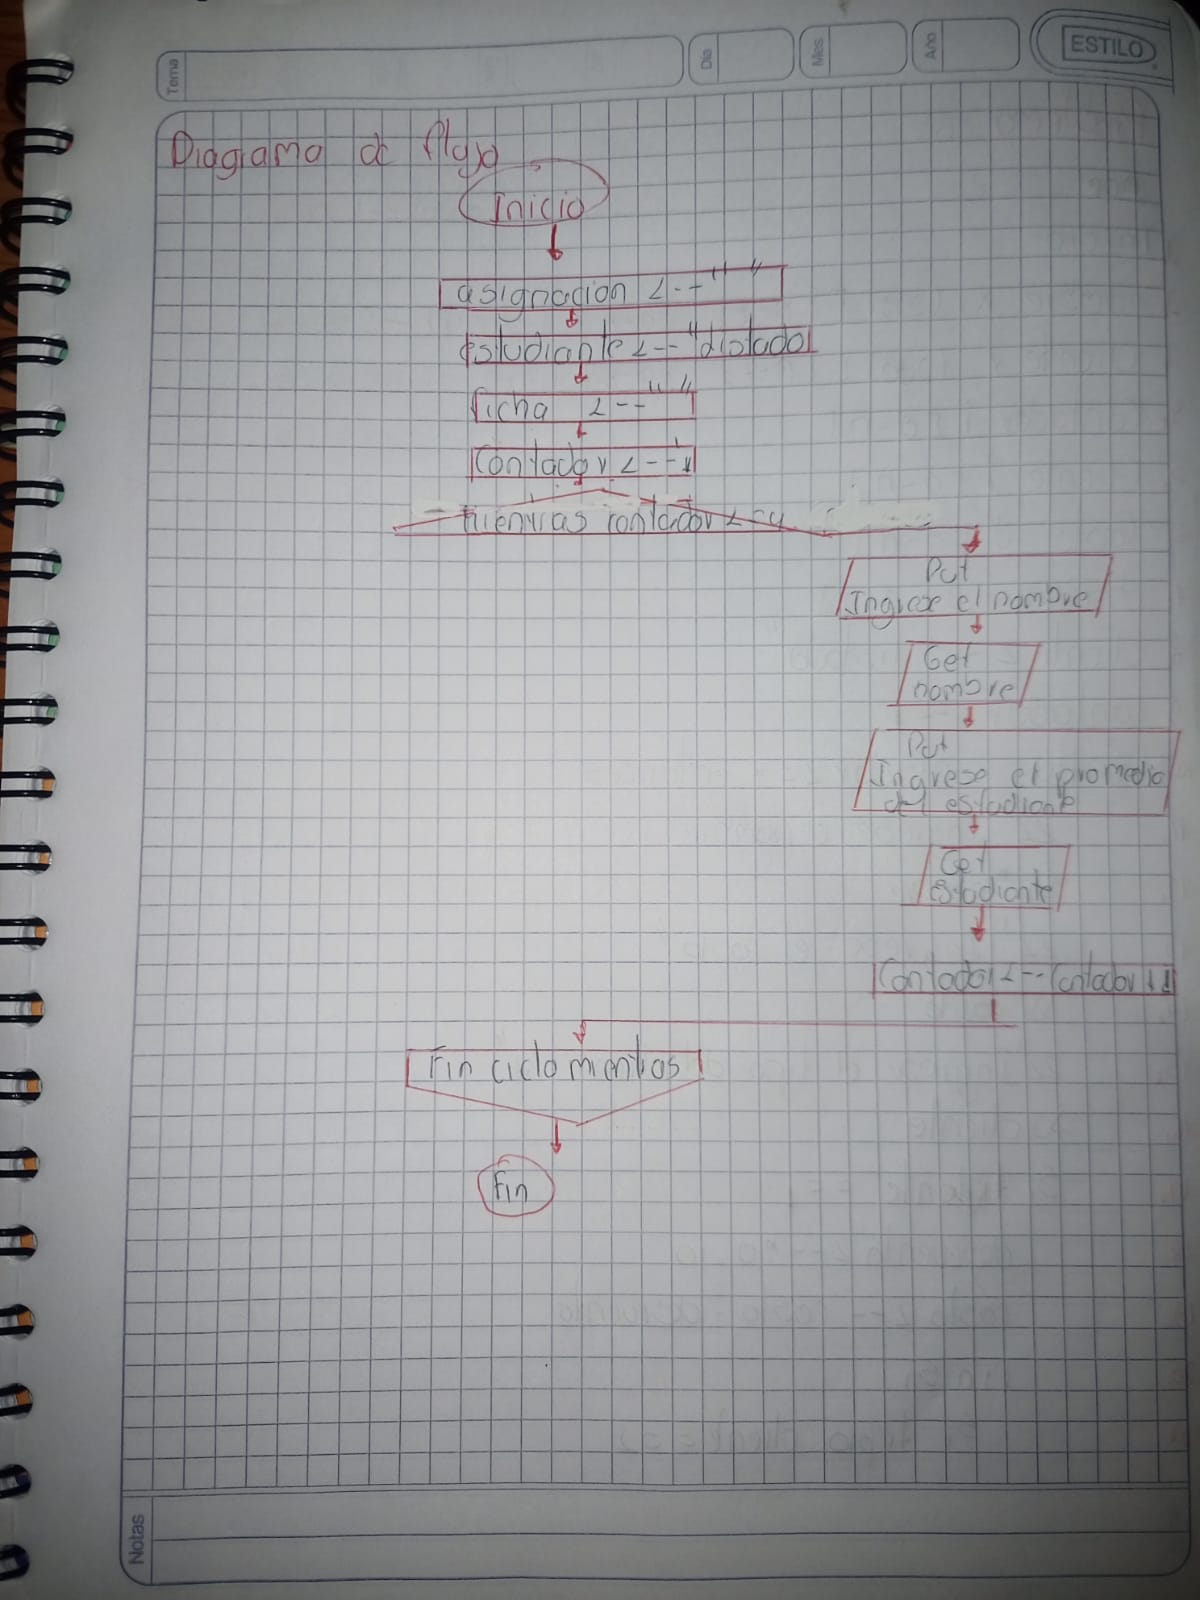 Tema
Dia
Mes
Año
ESTILO
Diagrama de flujo
Inicio
asignacion <-- " "
estudiante <-- "distado
ficha <-- " "
Contador <-- 1
Mientras contador <=
Put
Ingrese el nombre
Get
nombre
Put
Ingrese el promedio
del estudiante
Get
estudiante
Contador <-- Contador +1
Fin ciclo mientras
Fin
Notas